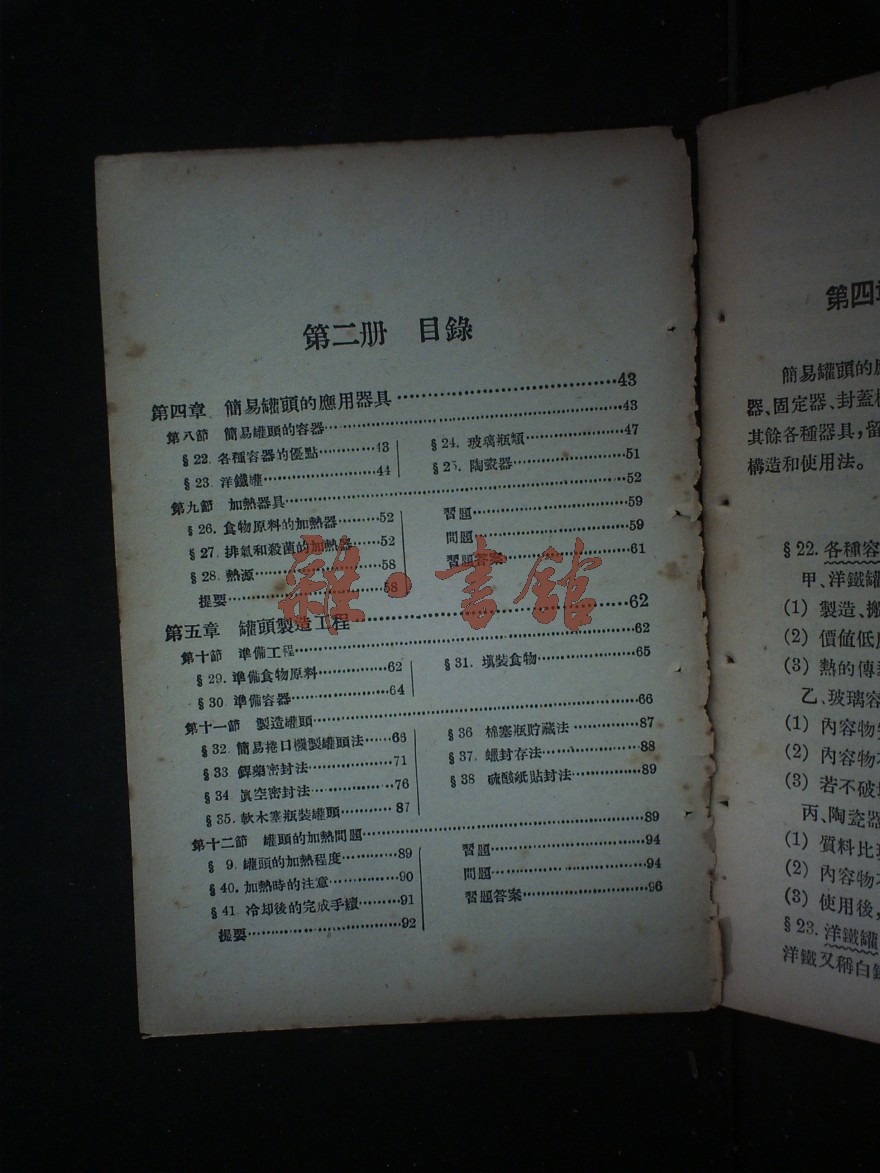 第二册 目錄
第四章 簡易罐頭的應用器具……43
第八節 簡易罐頭的容器……43
§22. 各種容器的優點……43
§23. 洋鐵罐……44
§24. 玻璃瓶類……47
§25. 陶瓷器……51
第九節 加熱器具……52
§26. 食物原料的加熱器……52
§27. 排氣和殺菌的加熱器……52
§28. 熱源……58
提要……58
習題……59
問題……59
習題答案……61
第五章 罐頭製造工程……62
第十節 準備工程……62
§29. 準備食物原料……62
§30. 準備容器……64
§31. 塡裝食物……65
第十一節 製造罐頭……66
§32. 簡易捲口機製罐頭法……66
§33 銲藥密封法……71
§34 眞空密封法……76
§35. 軟木塞瓶裝罐頭……87
§36 棉塞瓶貯藏法……87
§37. 蠟封存法……88
§38 硫酸紙貼封法……89
第十二節 罐頭的加熱問題……89
§ 9. 罐頭的加熱程度……89
§40. 加熱時的注意……90
§41. 冷却後的完成手續……91
提要……92
習題……94
問題……94
習題答案……96
雜·書館
第四章
簡易罐頭的
器、固定器、封蓋
其餘各種器具,留
構造和使用法。
§22. 各種容
甲、洋鐵罐
(1) 製造、搬
(2) 價値低
(3) 熱的傳
乙、玻璃容
(1) 內容物
(2) 內容物
(3) 若不破
丙、陶瓷器
(1) 質料比
(2) 內容物
(3) 使用後,
§23. 洋鐵罐
洋鐵又稱白